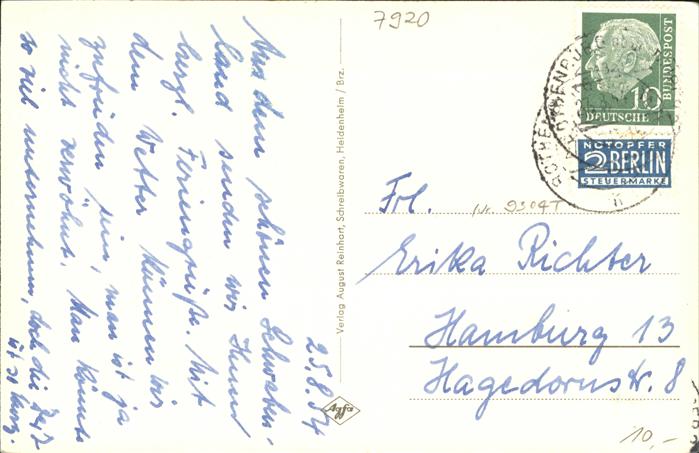 7920
25.8.54
Aus dem schönen Schwaben-
land senden wir Ihnen
herzl. Feriengrüße. Mit
dem Wetter können wir
zufrieden sein, man ist ja
nicht verwöhnt. Man könnte
so viel unternehmen, doch die Zeit
ist so kurz.
Verlag August Reinhart, Schreibwaren, Heidenheim / Brz.
Agfa
DEUTSCHE
BUNDESPOST
10
NOTOPFER
2 BERLIN
STEUERMARKE
Frl.
Erika Richter
Hamburg 13
Hagedornstr. 8
10,-